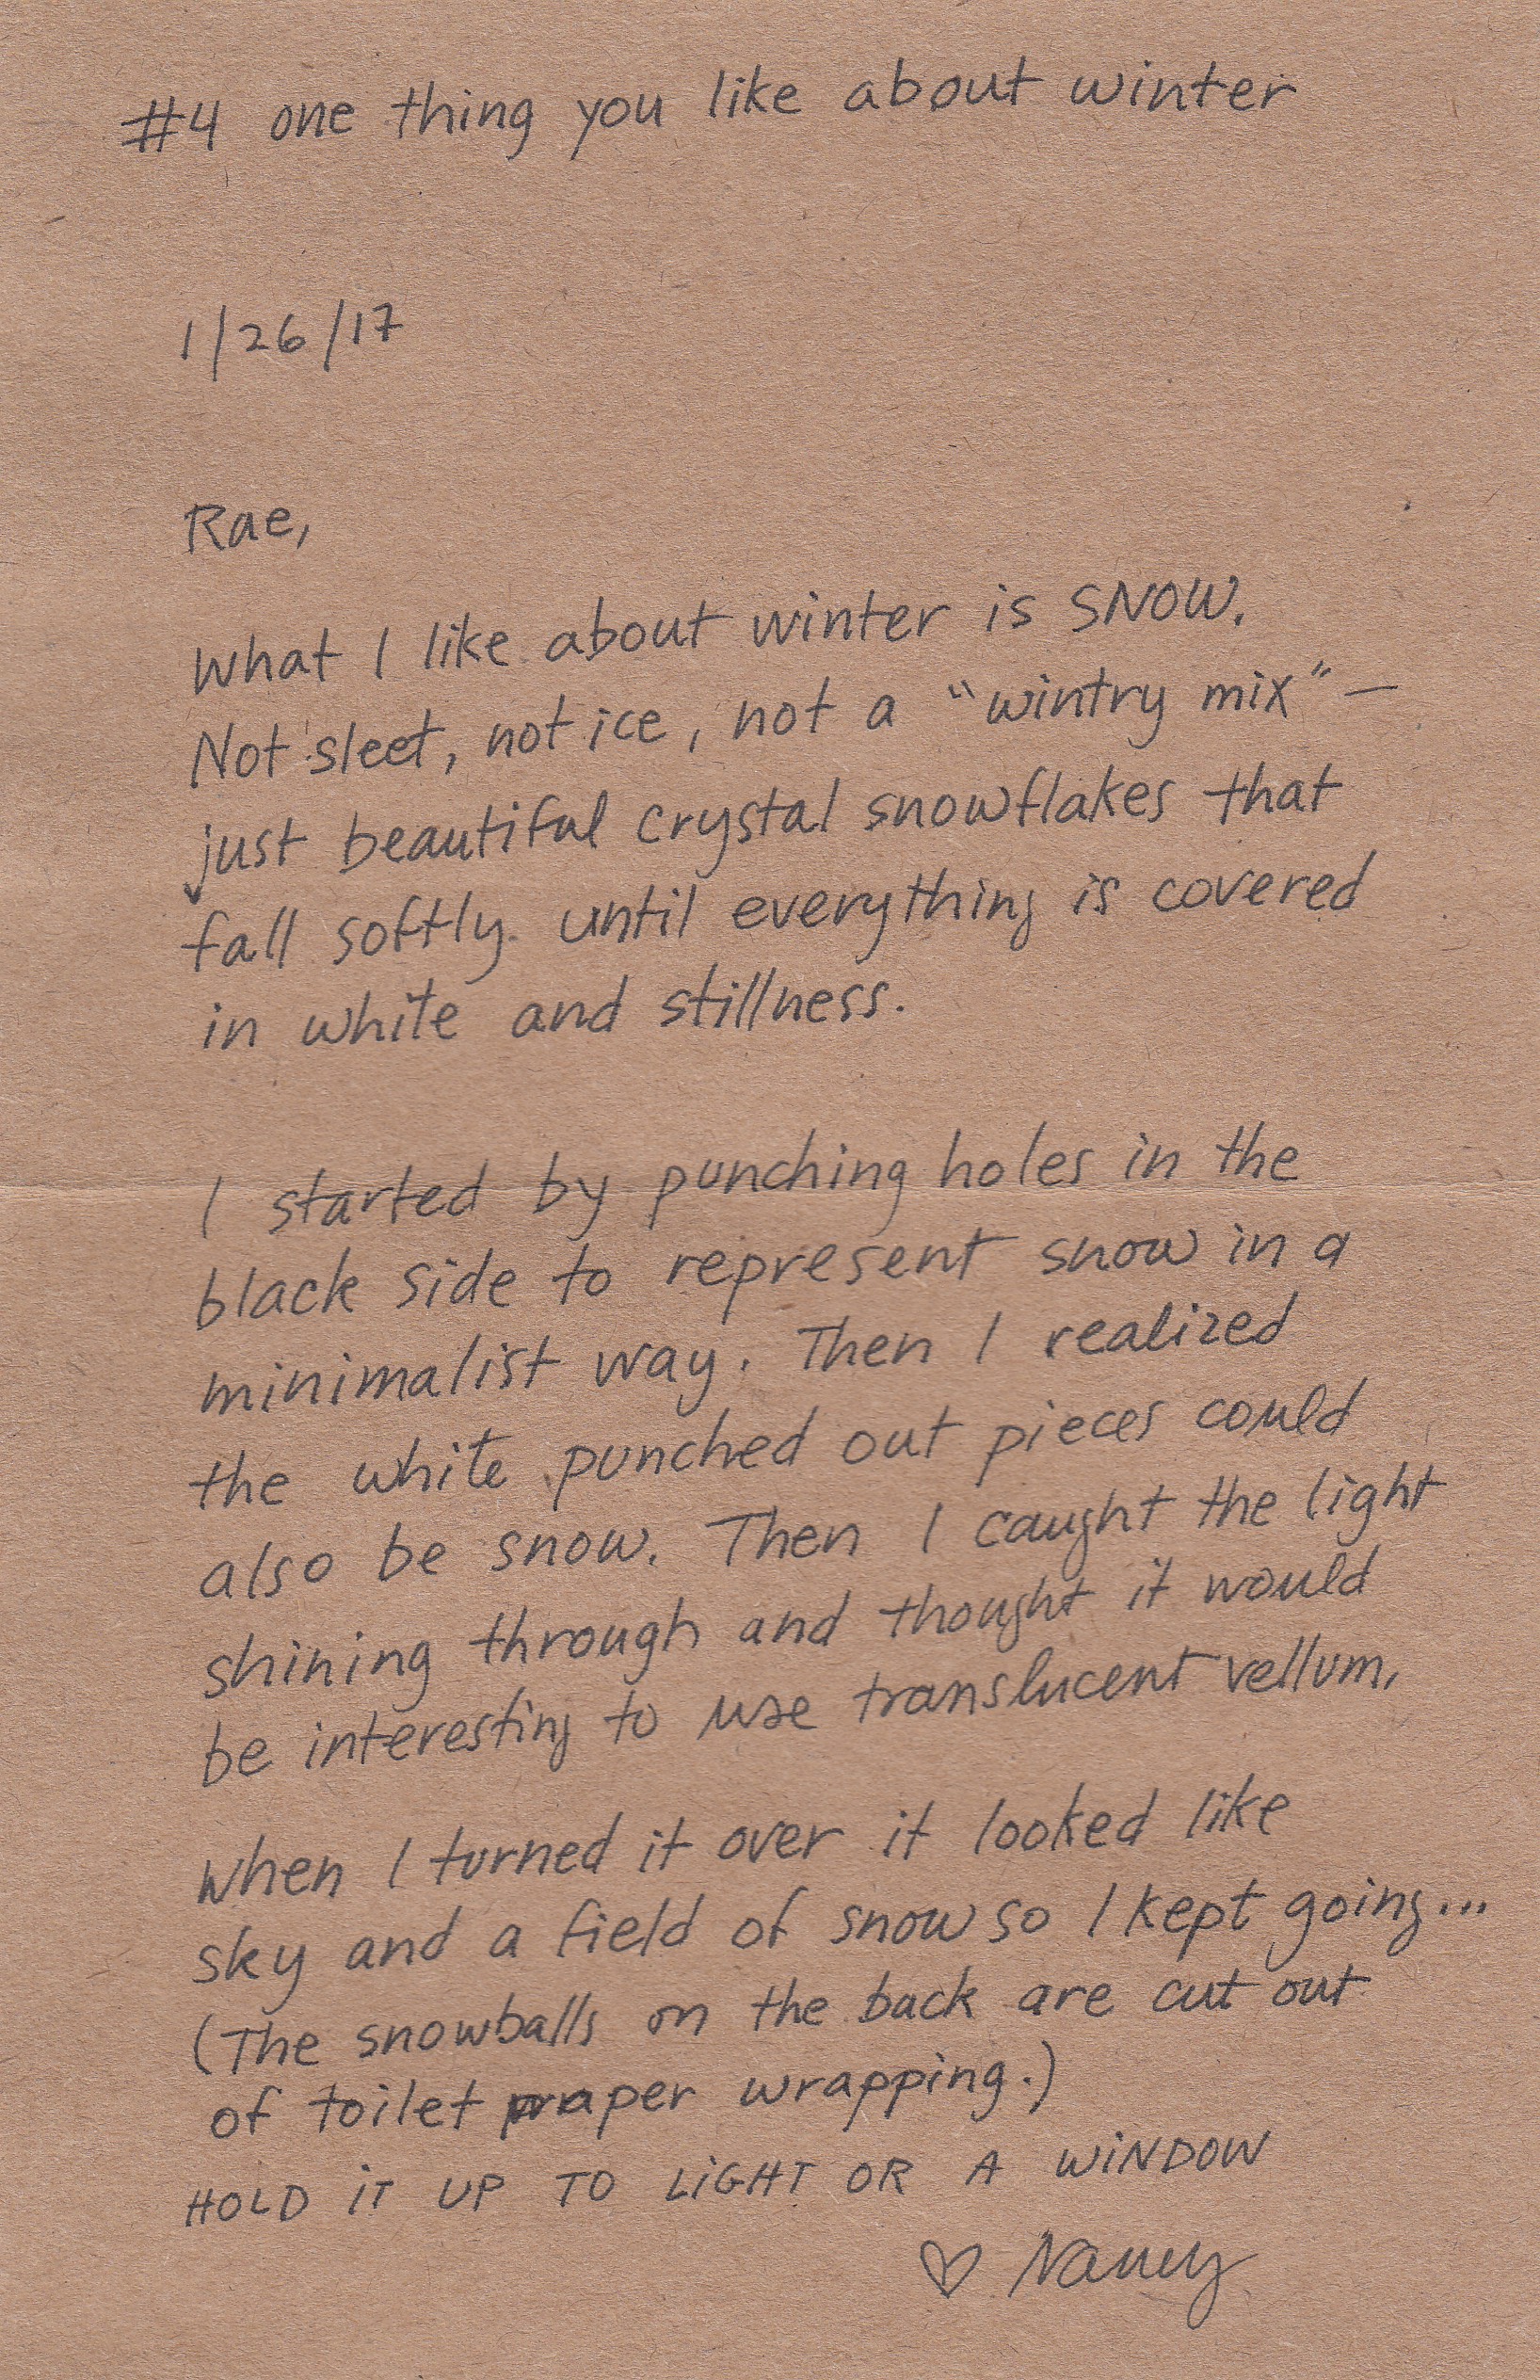 #4 one thing you like about winter
1/26/17
Rae,
What I like about winter is SNOW.
Not sleet, not ice, not a "wintry mix" —
just beautiful crystal snowflakes that
fall softly until everything is covered
in white and stillness.
I started by punching holes in the
black side to represent snow in a
minimalist way. Then I realized
the white punched out pieces could
also be snow. Then I caught the light
shining through and thought it would
be interesting to use translucent vellum.
When I turned it over it looked like
sky and a field of snow so I kept going...
(The snowballs on the back are cut out
of toilet paper wrapping.)
HOLD iT UP TO LiGHT OR A WiNDOW
♡ Nancy